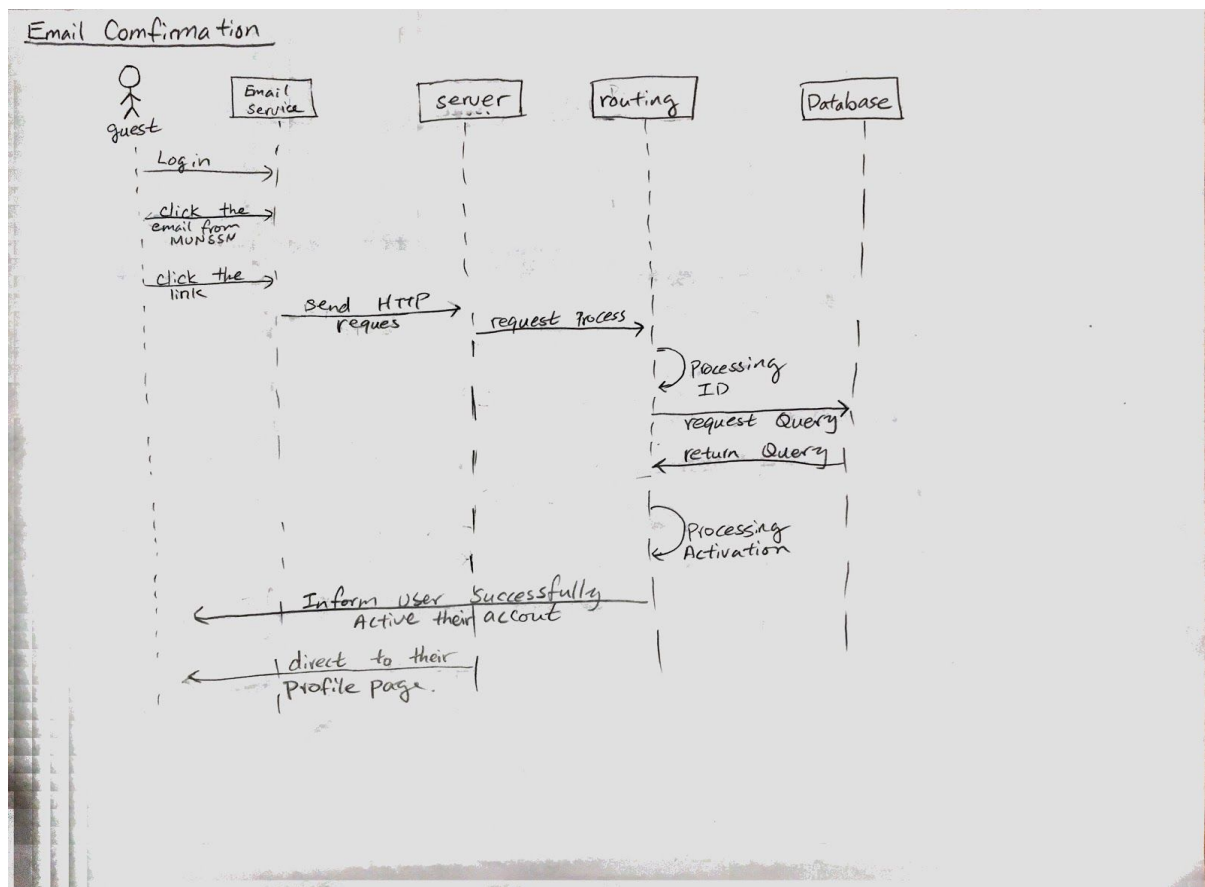 Email Comfirmation
guest
Email
Service
server
routing
Database
Login
click the
email from
MUNSSN
click the
link
send HTTP
reques
request Process
Processing
ID
request Query
return Query
Processing
Activation
Inform User Successfully
Active their accout
direct to their
Profile page.